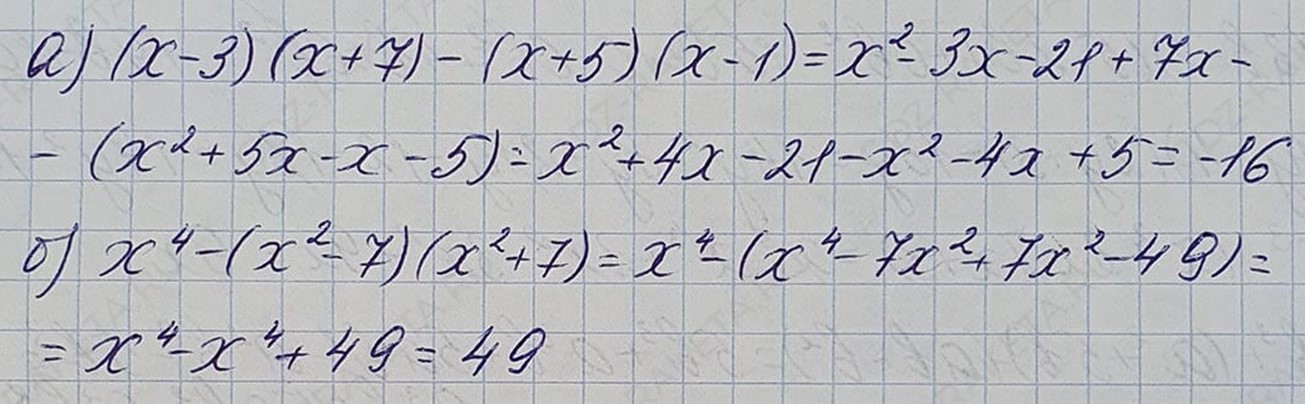 а) (x-3)(x+7)-(x+5)(x-1)=x²-3x-21+7x-
-(x²+5x-x-5)=x²+4x-21-x²-4x+5=-16
б) x⁴-(x²-7)(x²+7)=x⁴-(x⁴-7x²+7x²-49)=
=x⁴-x⁴+49=49